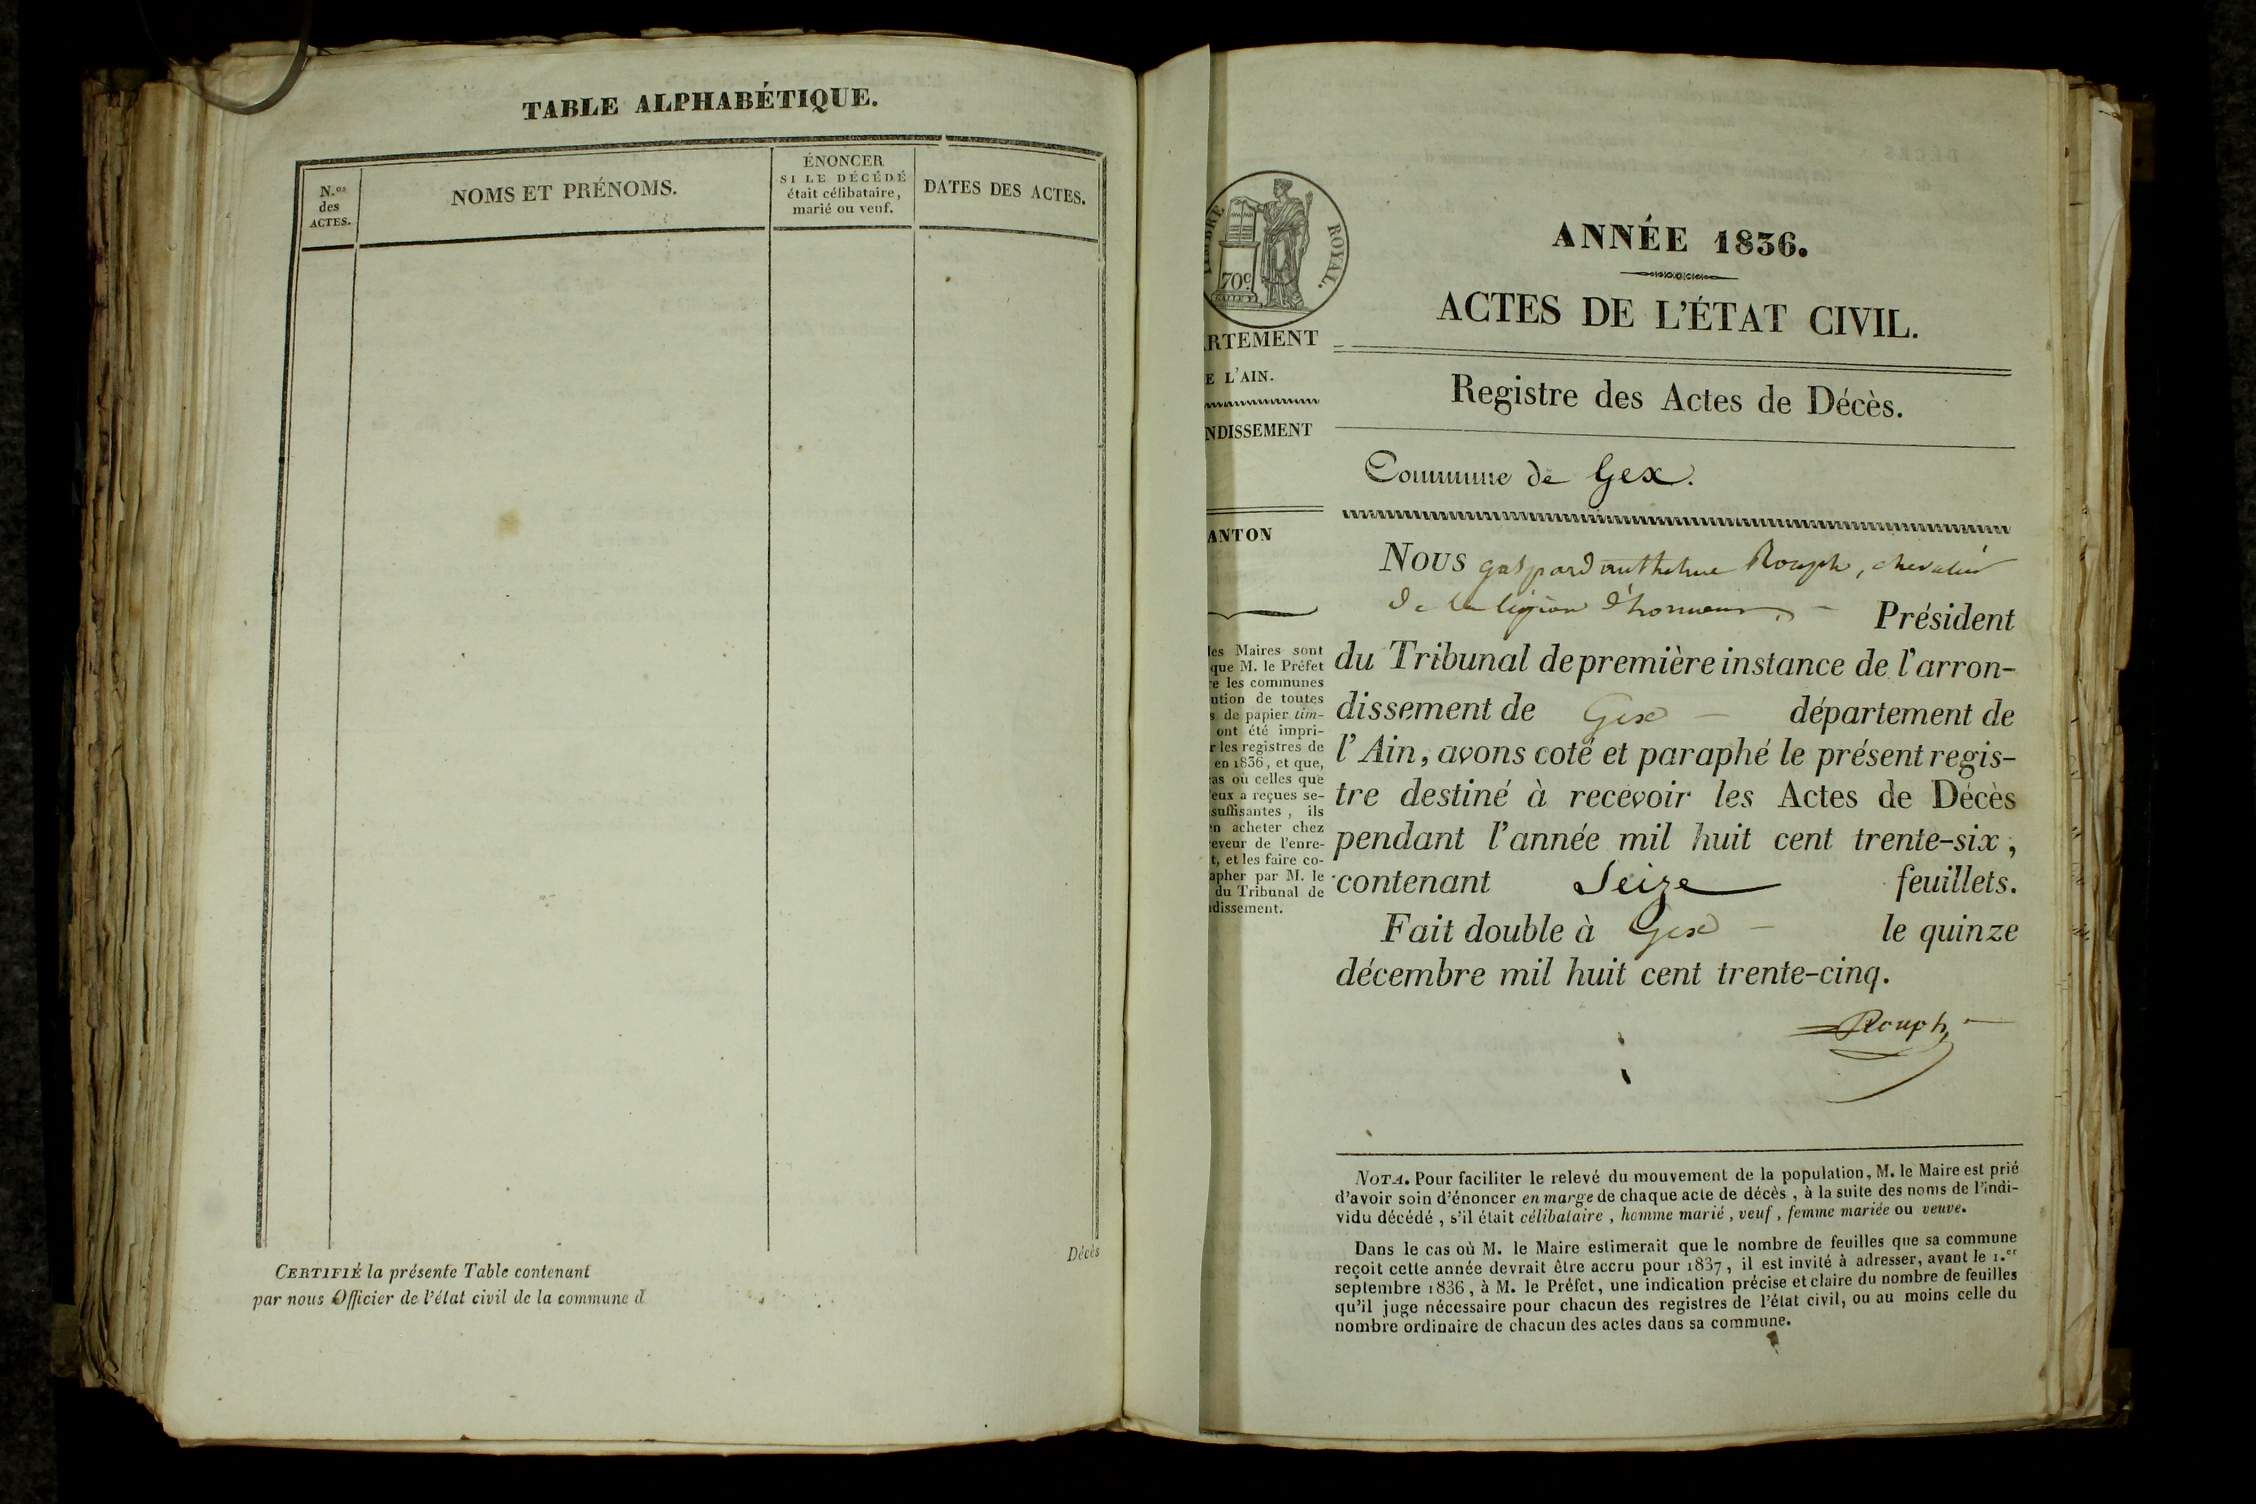 TABLE ALPHABÉTIQUE.
N.os
des
ACTES.
NOMS ET PRÉNOMS.
ÉNONCER
SI LE DÉCÉDÉ
était célibataire,
marié ou veuf.
DATES DES ACTES.
Décès
CERTIFIÉ la présente Table contenant
par nous Officier de l'état civil de la commune d
ROYAL.
70c.
RTEMENT
E L'AIN.
NDISSEMENT
ANTON
les Maires sont
que M. le Préfet
les communes
ntion de toutes
de papier tim-
ont été impri-
r les registres de
en 1836, et que,
as où celles que
eux a reçues se-
suffisantes, ils
n acheter chez
eveur de l'enre-
t, et les faire co-
apher par M. le
du Tribunal de
dissement.
ANNÉE 1836.
ACTES DE L'ÉTAT CIVIL.
Registre des Actes de Décès.
Commune de Gex.
NOUS gaspard anthelme Rouph, chevalier
de la légion d'honneur, Président
du Tribunal de première instance de l'arron-
dissement de Gex département de
l'Ain, avons coté et paraphé le présent regis-
tre destiné à recevoir les Actes de Décès
pendant l'année mil huit cent trente-six;
contenant Seize feuillets.
Fait double à Gex le quinze
décembre mil huit cent trente-cinq.
Rouph
NOTA. Pour faciliter le relevé du mouvement de la population, M. le Maire est prié
d'avoir soin d'énoncer en marge de chaque acte de décès, à la suite des noms de l'indi-
vidu décédé, s'il était célibataire, homme marié, veuf, femme mariée ou veuve.
Dans le cas où M. le Maire estimerait que le nombre de feuilles que sa commune
reçoit cette année devrait être accru pour 1837, il est invité à adresser, avant le 1.er
septembre 1836, à M. le Préfet, une indication précise et claire du nombre de feuilles
qu'il juge nécessaire pour chacun des registres de l'état civil, ou au moins celle du
nombre ordinaire de chacun des actes dans sa commune.